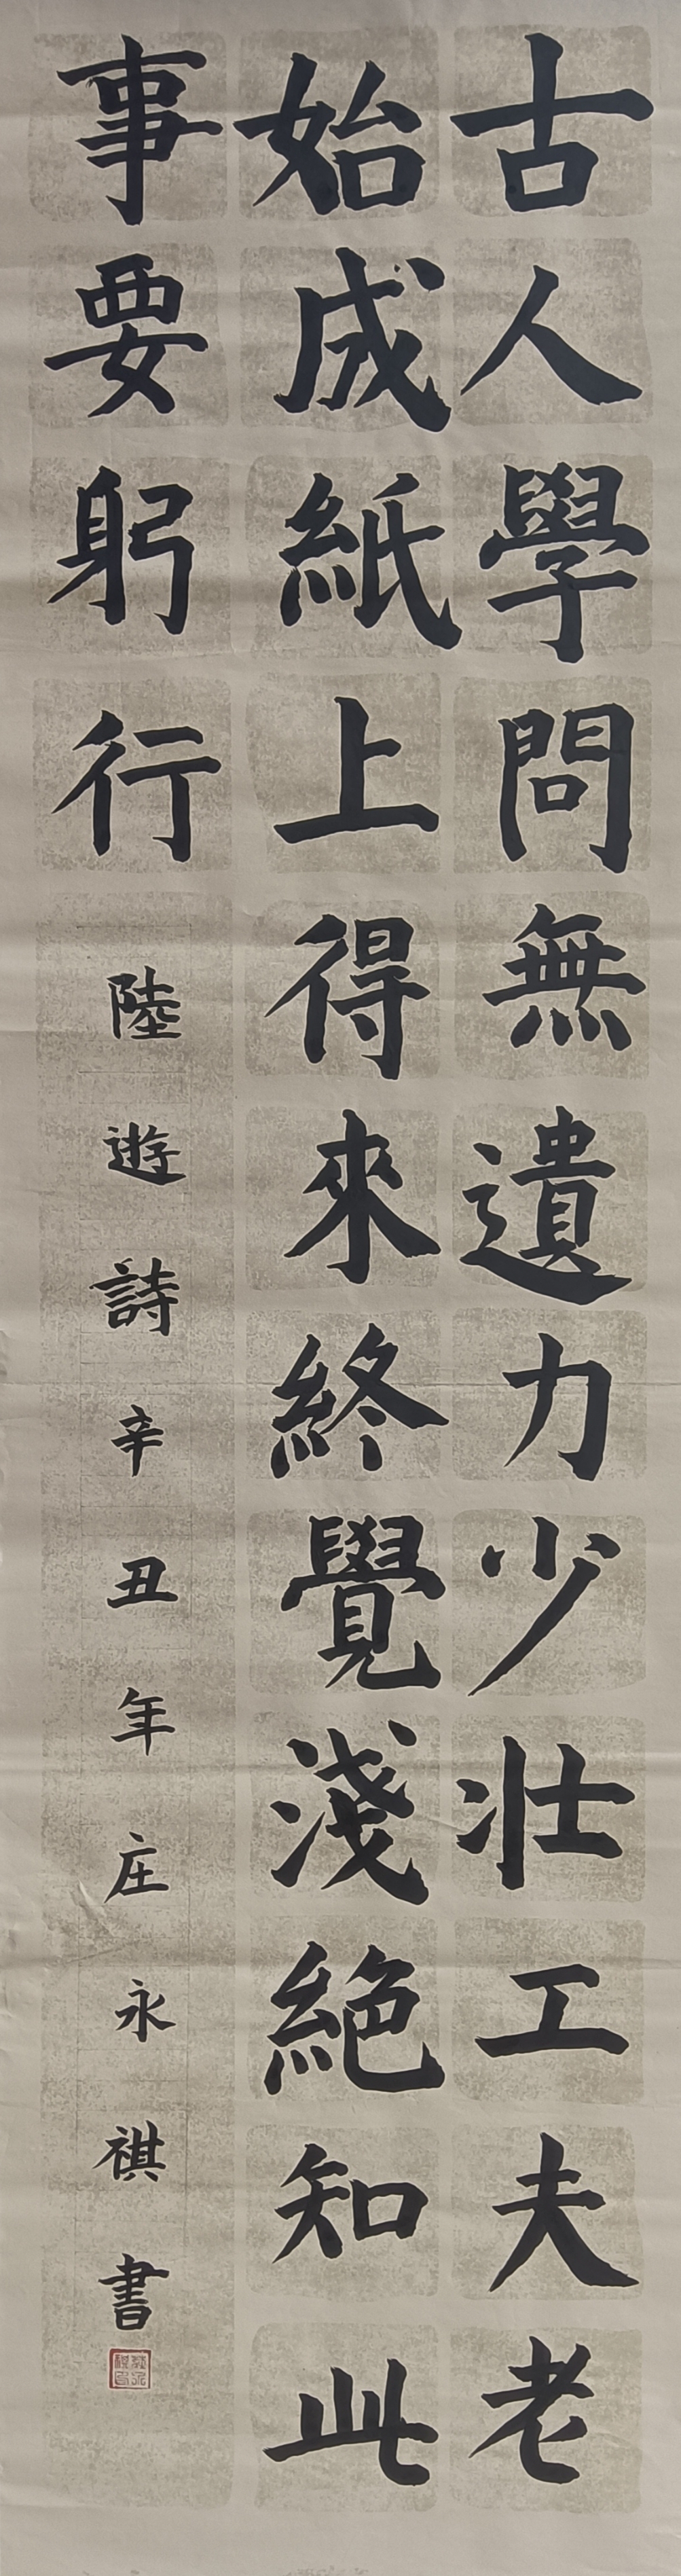 古人學問無遺力少壯工夫老
始成紙上得來終覺淺絕知此
事要躬行
陸遊詩辛丑年庄永祺書